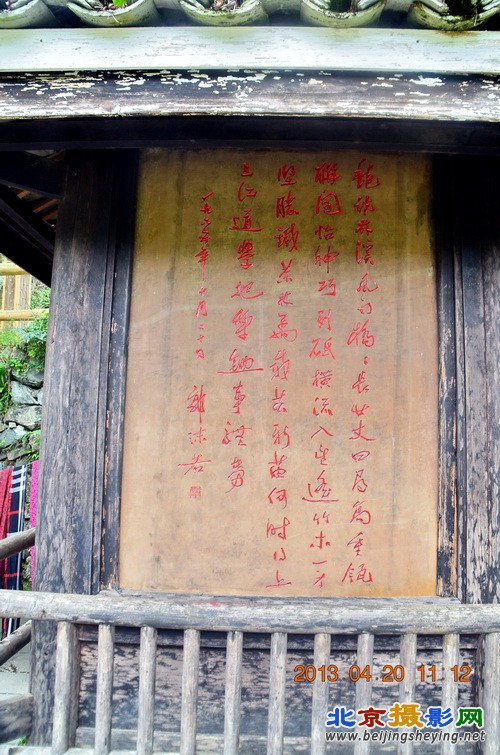 艳説林溪风雨橋〻長廿丈四尋高重瓴
聯阁怡神巧列砥横流入望遙竹木一身
堅勝鐵茶林萬載茁新苗何時得上
三江道學把犁鋤事體勞
一九六五年十月二十日
郭沫若
2013.04.20 11 12
北京摄影网
www.beijingsheying.net